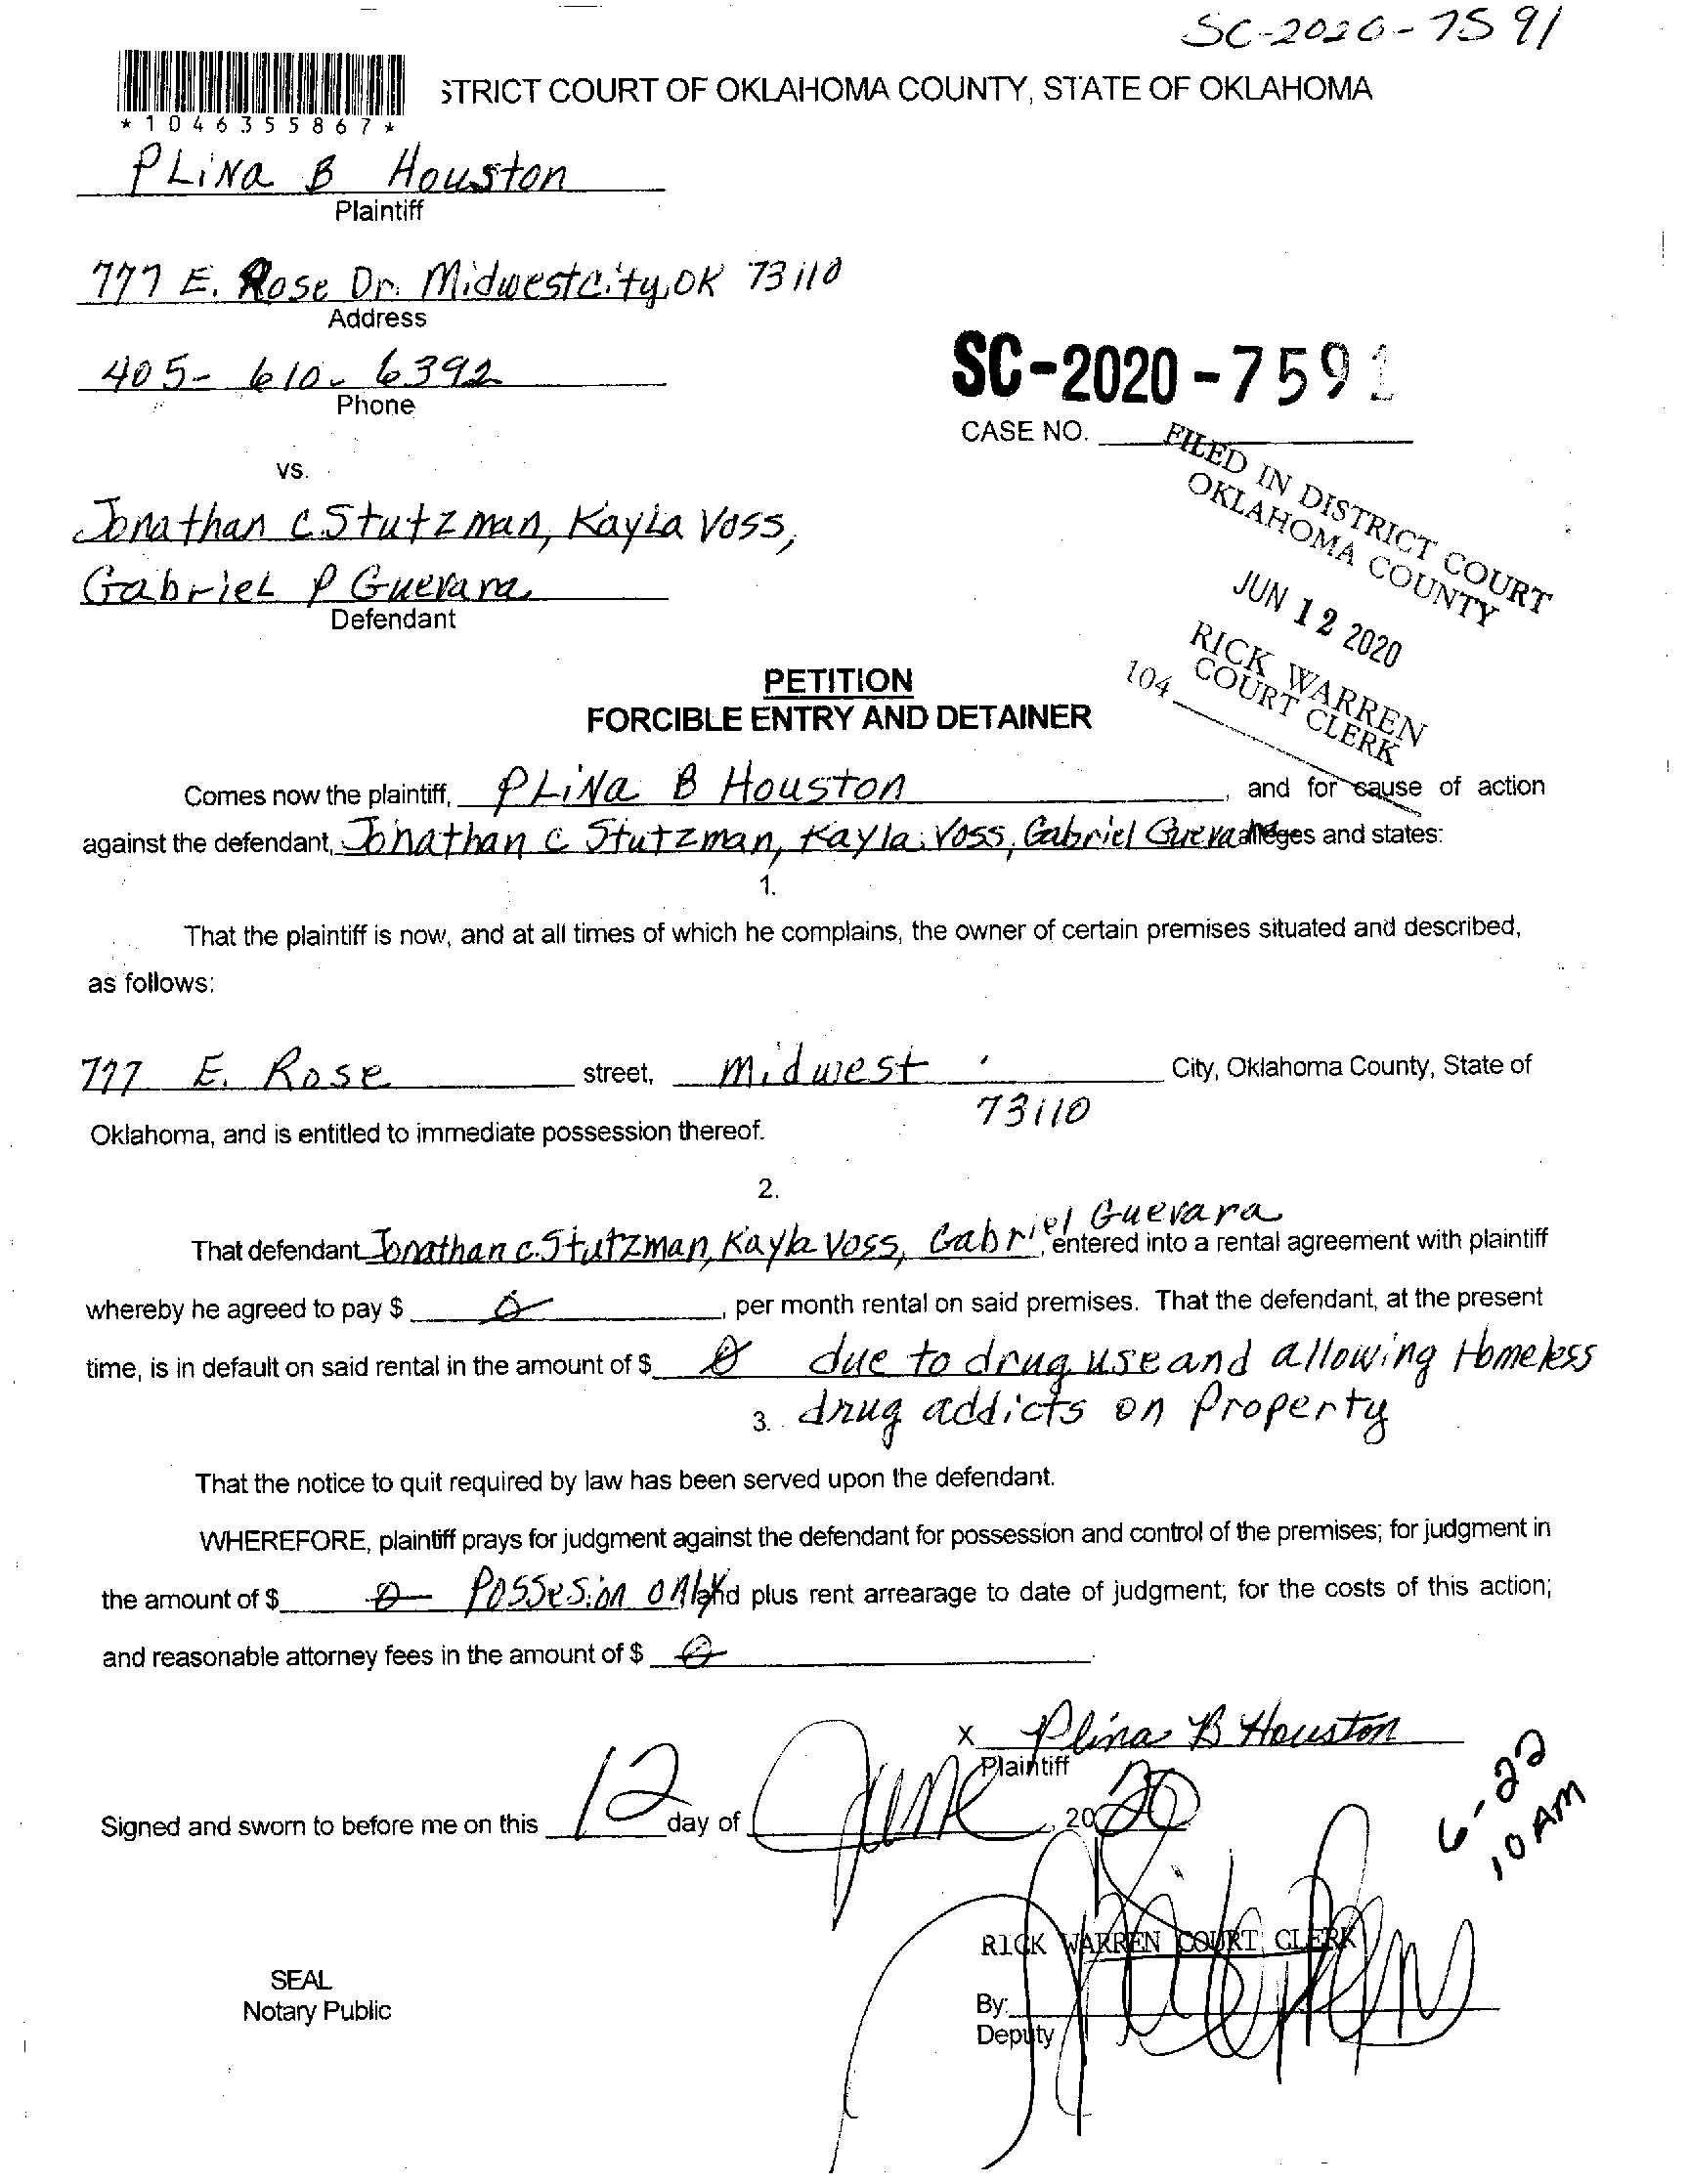 SC-2020-7591
STRICT COURT OF OKLAHOMA COUNTY, STATE OF OKLAHOMA
*1046355867*
PLiNa B Houston
Plaintiff
777 E. Rose Dr. Midwestcity, OK 73110
Address
405-610-6392
Phone
SC-2020-7591
CASE NO.
FILED IN DISTRICT COURT
OKLAHOMA COUNTY
JUN 12 2020
RICK WARREN
COURT CLERK
104
vs.
Jonathan C Stutzman, Kayla Voss,
Gabriel P Guevara
Defendant
PETITION
FORCIBLE ENTRY AND DETAINER
Comes now the plaintiff, PLiNa B Houston, and for cause of action
against the defendant, Jonathan C Stutzman, Kayla Voss, Gabriel Guevara alleges and states:
1.
That the plaintiff is now, and at all times of which he complains, the owner of certain premises situated and described,
as follows:
777 E. Rose street, Midwest City, Oklahoma County, State of
73110
Oklahoma, and is entitled to immediate possession thereof.
2.
That defendant Jonathan C. Stutzman, Kayla Voss, Gabriel Guevara, entered into a rental agreement with plaintiff
whereby he agreed to pay $ 0, per month rental on said premises. That the defendant, at the present
time, is in default on said rental in the amount of $ 0 due to drug use and allowing Homeless
3. drug addicts on Property
That the notice to quit required by law has been served upon the defendant.
WHEREFORE, plaintiff prays for judgment against the defendant for possession and control of the premises; for judgment in
the amount of $ 0 Possesion only and plus rent arrearage to date of judgment; for the costs of this action;
and reasonable attorney fees in the amount of $ 0
x Plina B Houston
Plaintiff
Signed and sworn to before me on this 12 day of June, 2020
6-22
10 AM
RICK WARREN COURT CLERK
SEAL
Notary Public
By:
Deputy